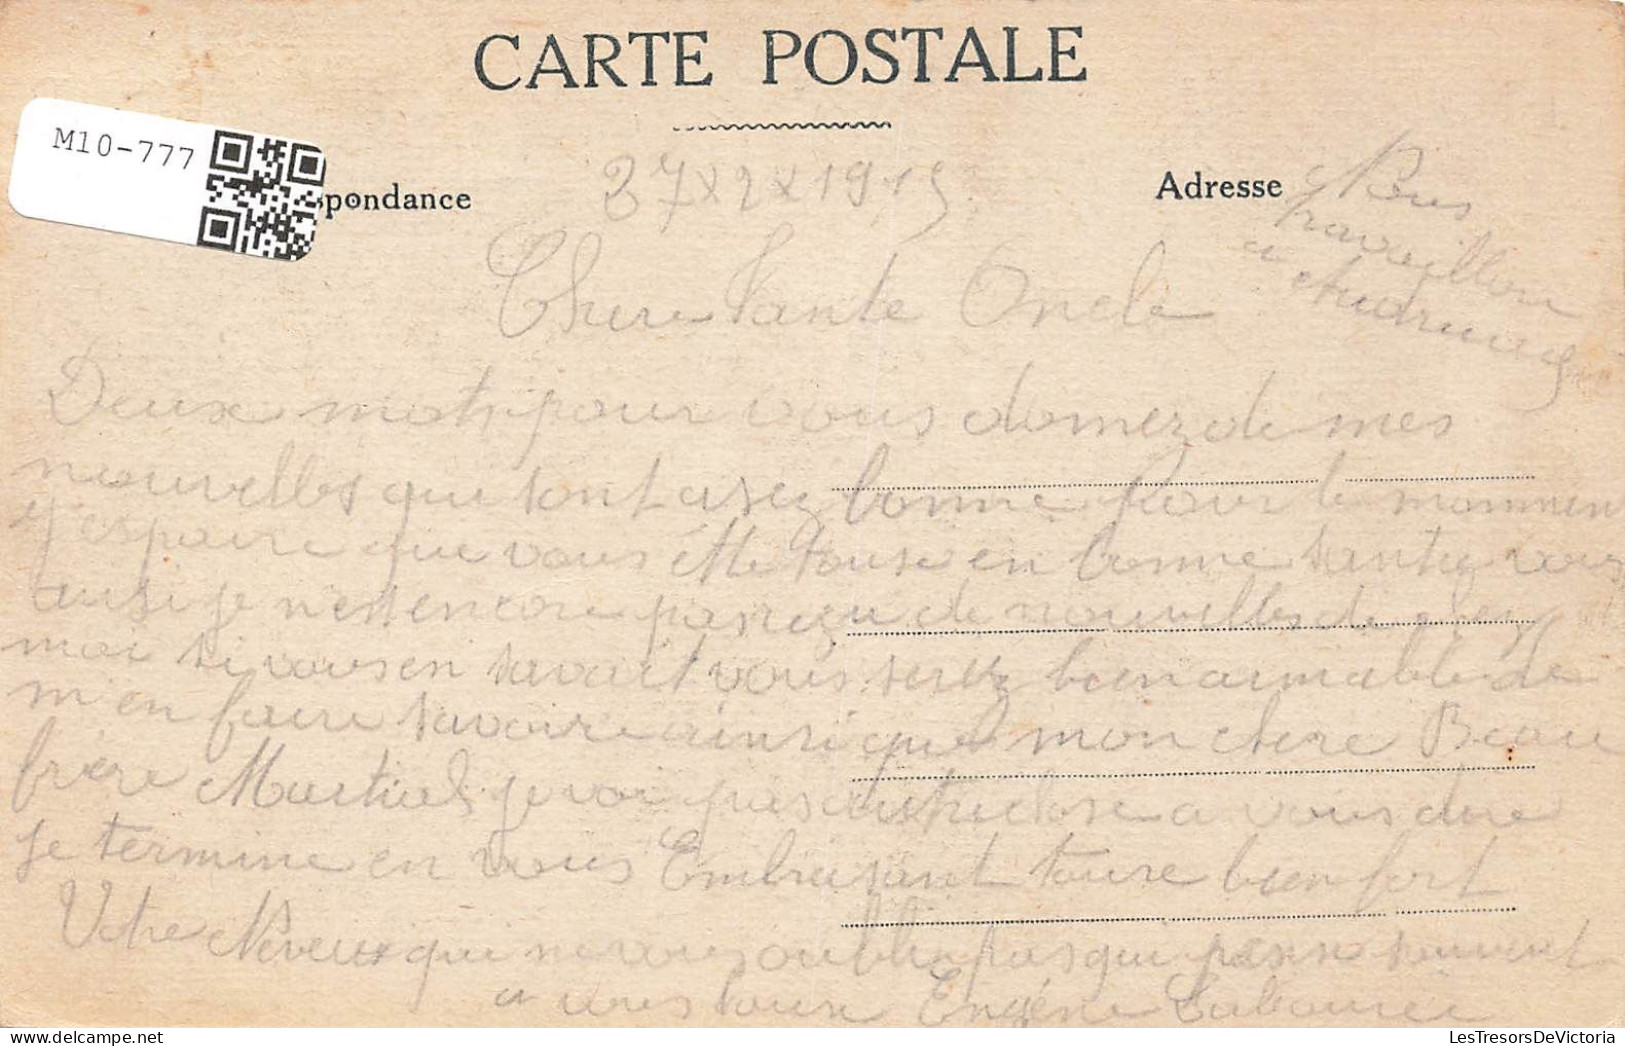 CARTE POSTALE
M10-777
pondance
Adresse
27x2x1915
Nous
travaillon
a
Chere Tante Oncle
Deux mots pour vous domez de mes
nouvelles qui sont asez bonne pour le mommen
j'espaire que vous éte touse en bonne santez vous
ausi je n'est encore pas reçu de nouvelles de chez
moi si vous en savait vous serez bien aimable de
m'en faire savoire ainsi que mon chere Beau
frère Martial je voi pas autre chose a vous dire
Je termine en vous Embrasant touse bien fort
Votre Neveux qui ne vous oublie pas qui panse souvent
a vous toux Eugéne
LesTresorsDeVictoria